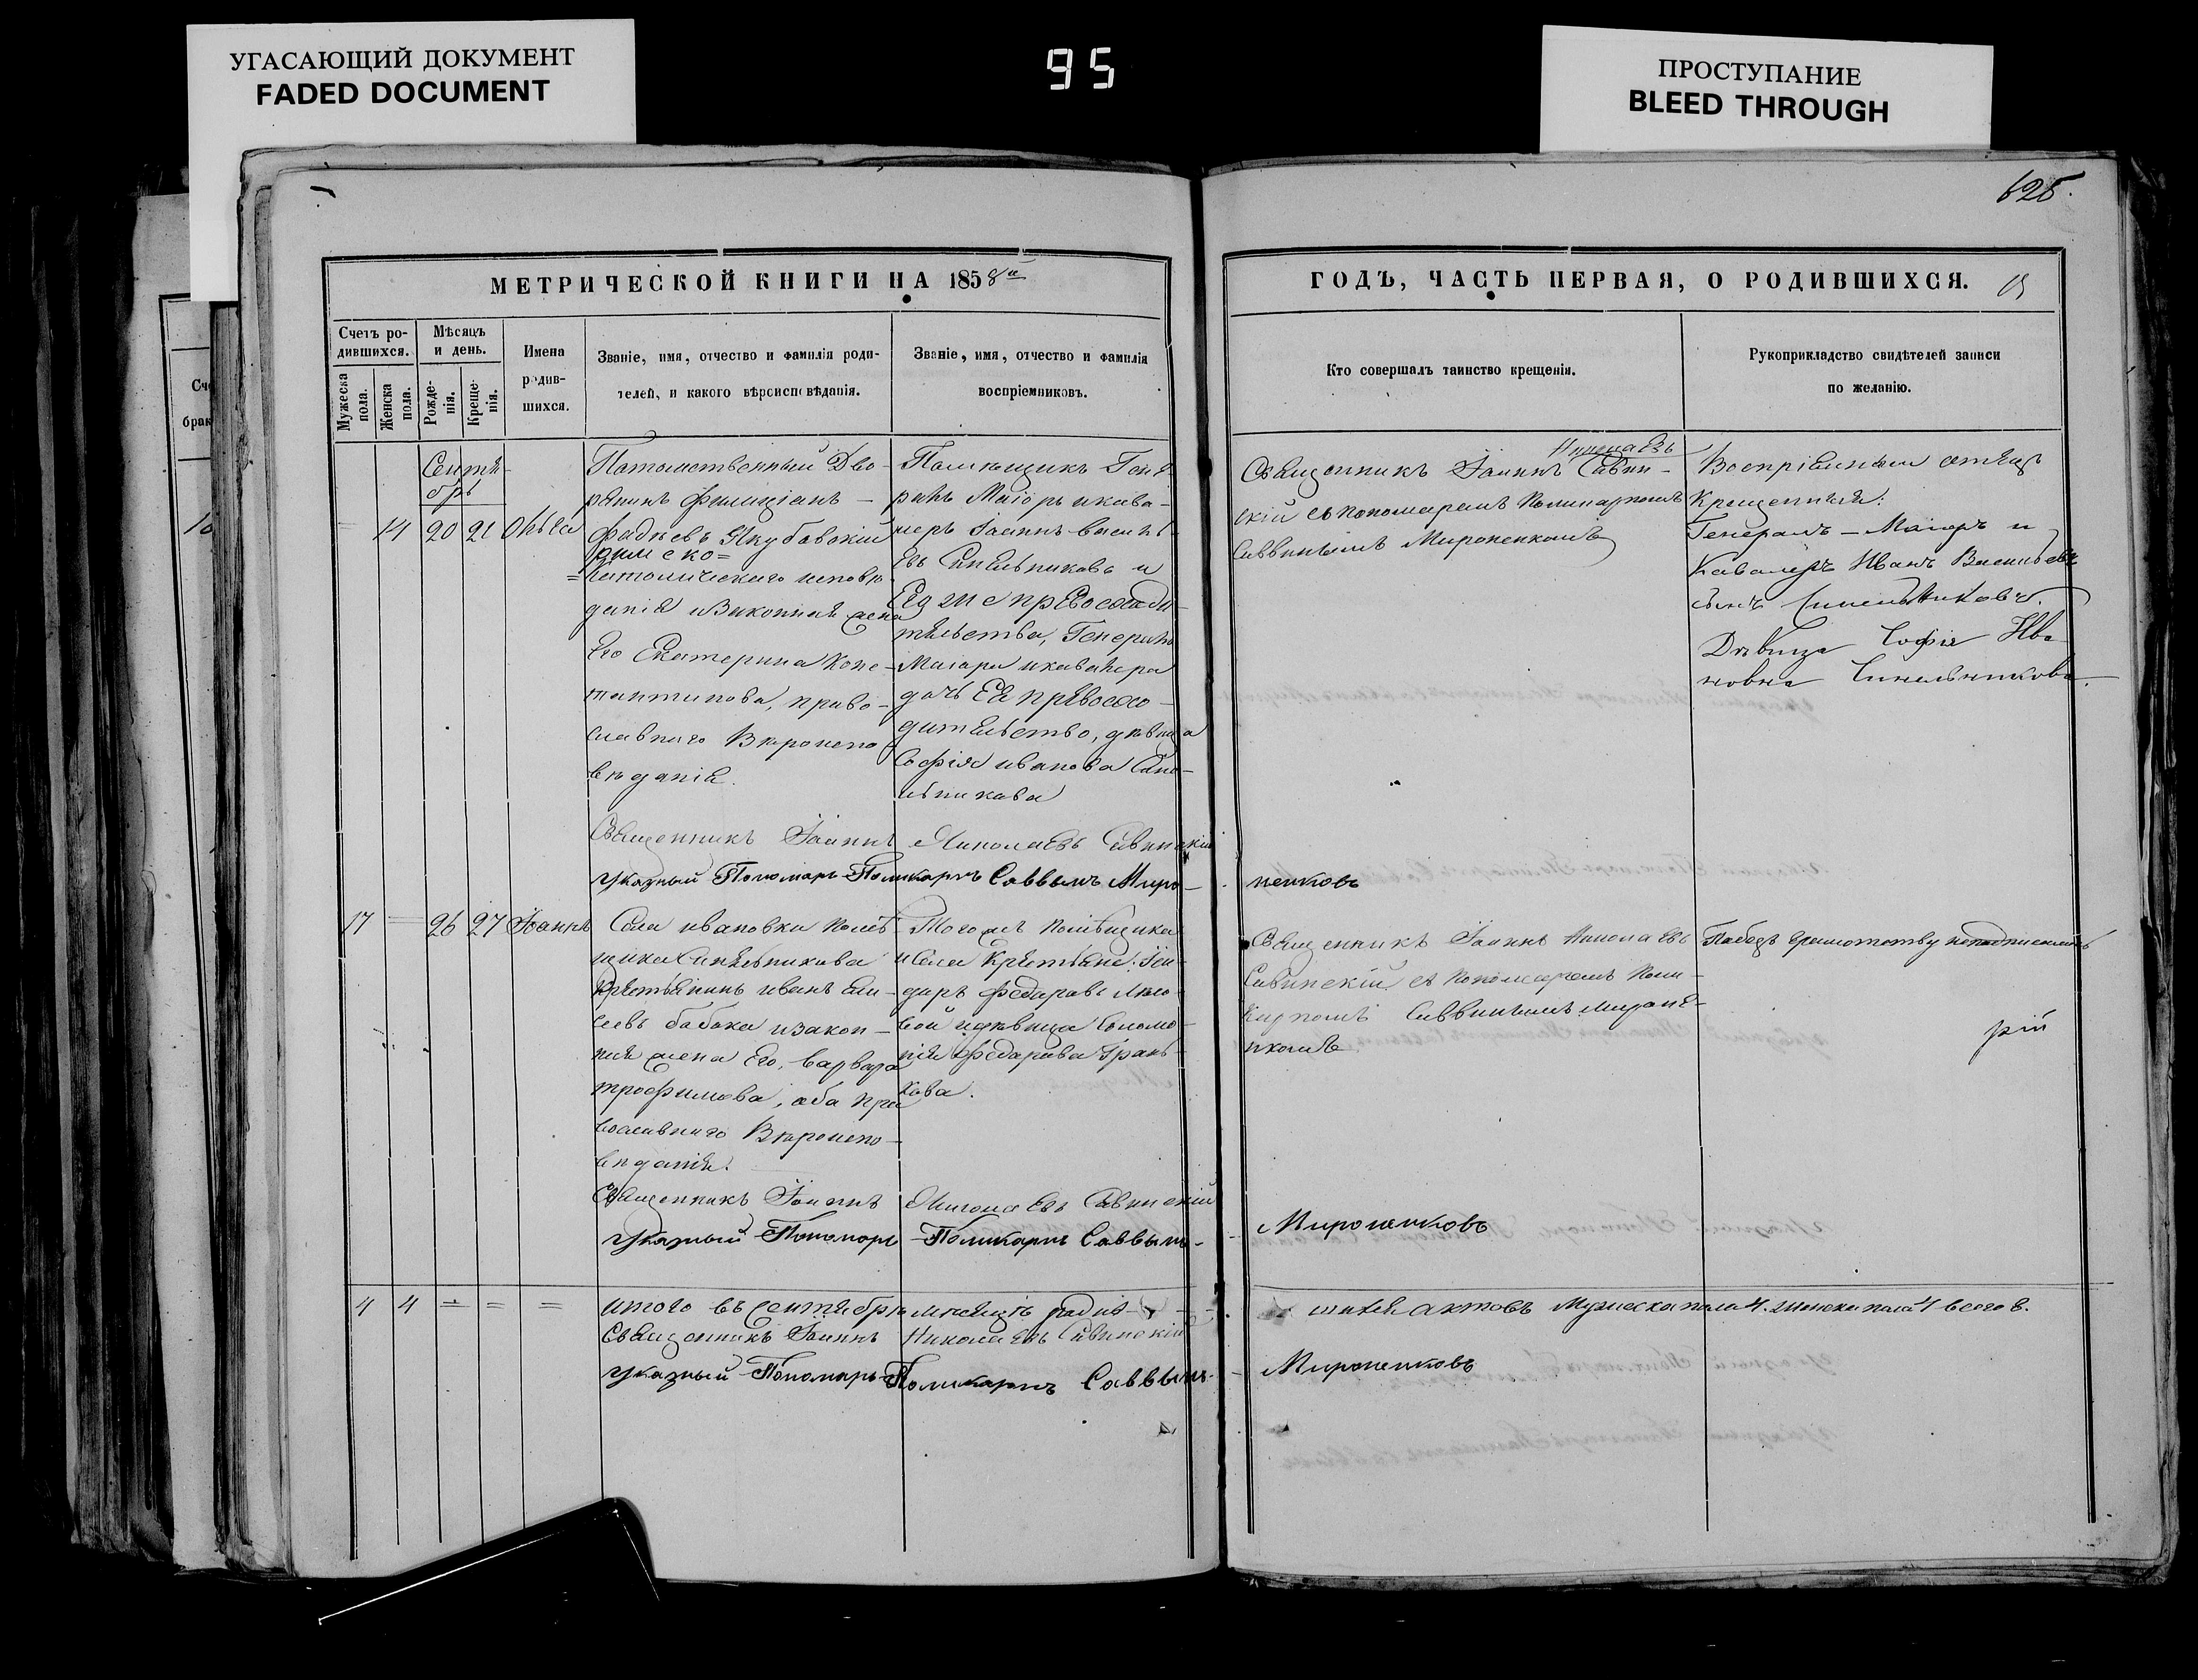 УГАСАЮЩИЙ ДОКУМЕНТ
FADED DOCUMENT
95
ПРОСТУПАНИЕ
BLEED THROUGH
625.
МЕТРИЧЕСКОЙ КНИГИ НА 1858й
ГОДЪ, ЧАСТЬ ПЕРВАЯ, О РОДИВШИХСЯ.
Счетъ ро-
дившихся.
Мужеска
пола.
Женска
пола.
Мѣсяцъ
и день.
Рожде-
нія.
Креще-
нія.
Имена
родив-
шихся.
Званіе, имя, отчество и фамилія роди-
телей, и какого вѣроисповѣданія.
Званіе, имя, отчество и фамилія
воспріемниковъ.
Кто совершалъ таинство крещенія.
Рукоприкладство свидѣтелей записи
по желанію.
Сентя-
брь
14 20 21 Ольга
Потомственный Дво-
рянинъ Филиціанъ
Фадѣевъ Якубовскій
римско=
=католическаго исповѣ
данія и законная жена
Его Екатерина Конс-
тантинова, право-
славнаго Вѣроиспо
вѣданія.
Помѣщикъ Гене
ралъ Маіоръ и кава-
леръ Іоаннъ Василь
евъ Синельниковъ и
Его же превосходи
тельства, Генералъ
Маіора и кавалера
дочь Ея превосхо-
дительство, дѣвица
Софія иванова Сине-
льникова
Николаевъ
Священникъ Іоаннъ Савин-
скій съ пономаремъ Поликарпомъ
Саввинымъ Мироненковымъ
Воспріемный отецъ
Крещенныя:
Генералъ-Маіоръ и
Кавалеръ Иванъ Васильевъ
сынъ Синельниковъ.
Дѣвица Софія Ива
новна Синельникова.
Священникъ Іоаннъ Николаевъ Савинскій
Указный Пономарь Поликарпъ Саввынъ Миро-
ненковъ
17 26 27 Іоаннъ
Села ивановки помѣ
щика Синельникова
крестьянинъ иванъ
севъ бабака и закон-
ная жена Его, варвара
трофимова, оба пра
вославнаго Вѣроиспо-
вѣданія.
Тогожъ помѣщика
и села Крестьяне:
даръ федоровъ
вой и дѣвица Соломо-
нія федорова
кова.
Священникъ Іоаннъ Николаевъ
Савинскій съ пономаремъ Поли-
карпомъ Саввинымъ Мироне-
нкомъ
Священникъ Іоаннъ Николаевъ Савинскій
Указный Пономарь Поликарпъ Саввынъ-
Мироненковъ
4 4 = = =
итого въ сентябрѣ мѣсяцѣ родив-
шихся актовъ Мужеска пола 4. Женска пола 4 всего 8.
Священникъ Іоаннъ Николаевъ Савинскій
Указный Пономарь Поликарпъ Саввынъ-
Мироненковъ